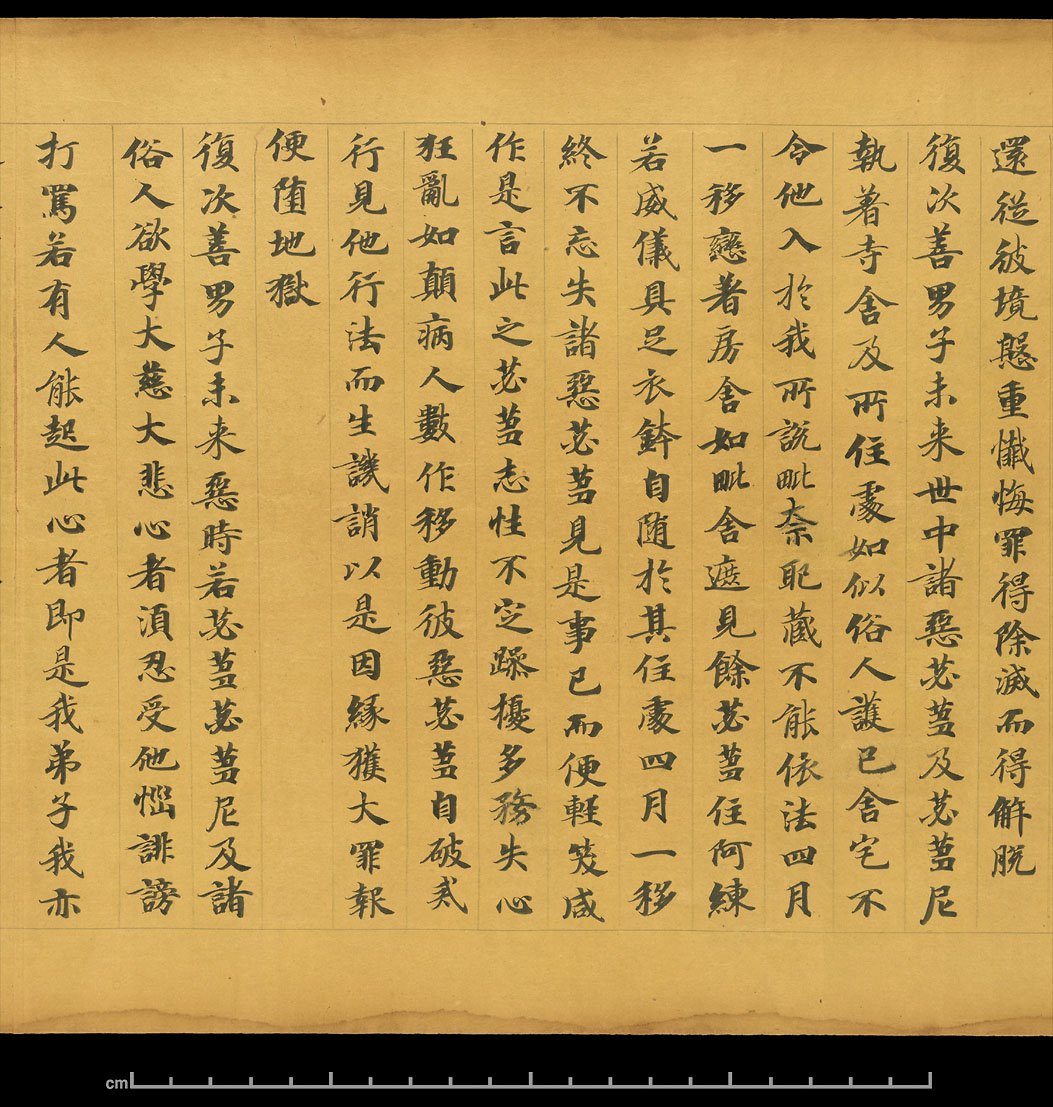 還從彼境慇重懺悔罪得除滅而得解脫
復次善男子未来世中諸惡苾蒭及苾蒭尼
執著寺舍及所住處如似俗人護已舍宅不
令他入於我所說毗奈耶藏不能依法四月
一移戀著房舍如毗舍遮見餘苾蒭住阿練
若威儀具足衣鉢自随於其住處四月一移
終不忘失諸惡苾蒭見是事已而便輕笑咸
作是言此之苾蒭志性不定躁擾多務失心
狂亂如顛病人數作移動彼惡苾蒭自破貳
行見他行法而生譏誚以是因緣獲大罪報
便墮地獄
復次善男子未来惡時若苾蒭苾蒭尼及諸
俗人欲學大慈大悲心者湏忍受他惱誹謗
打罵若有人能起此心者即是我弟子我亦
cm